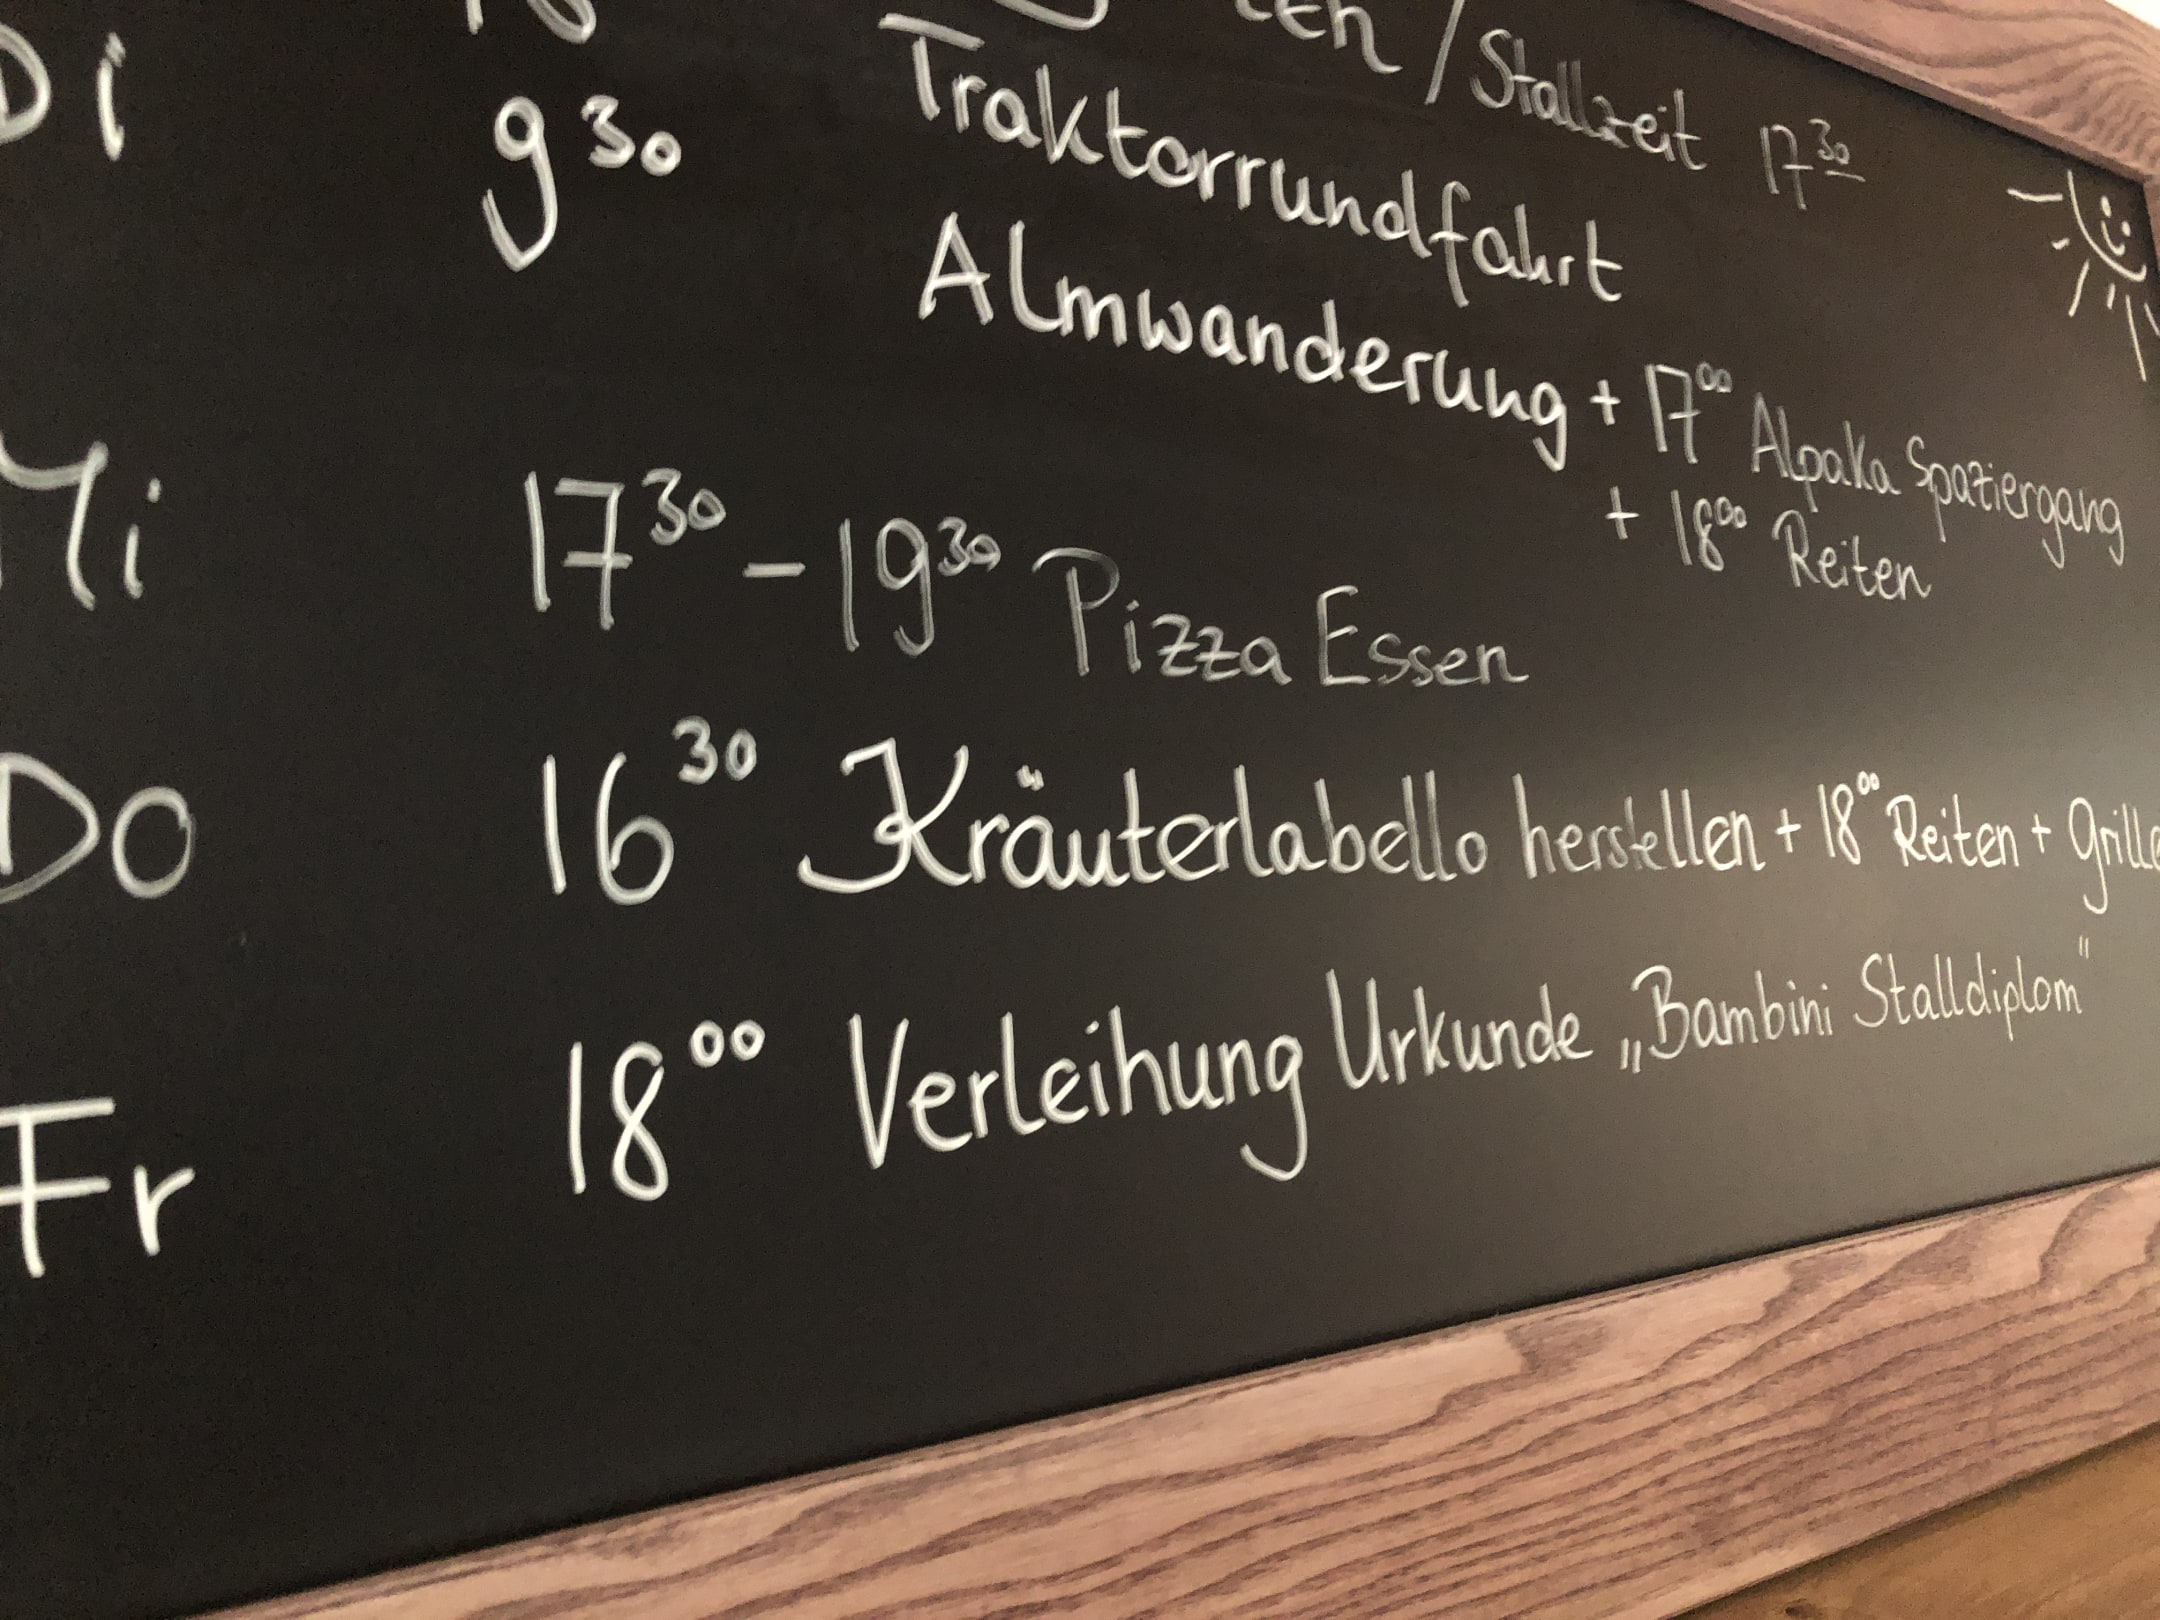 / Stallzeit 17 30
Di 9 30 Traktorrundfahrt
Almwanderung + 17 00 Alpaka Spaziergang
+ 18 00 Reiten
Mi 17 30 - 19 30 Pizza Essen
Do 16 30 Kräuterlabello herstellen + 18 00 Reiten + Grille
Fr 18 00 Verleihung Urkunde „Bambini Stalldiplom"